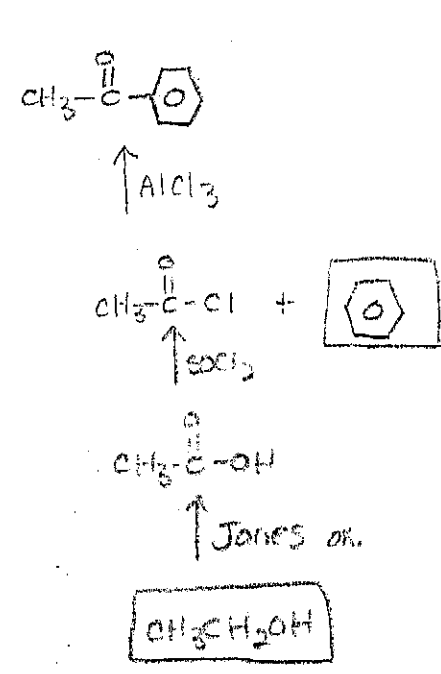 O
CH3-C-
AlCl3
O
CH3-C-Cl +
SOCl2
O
CH3-C-OH
Jones ox.
CH3CH2OH